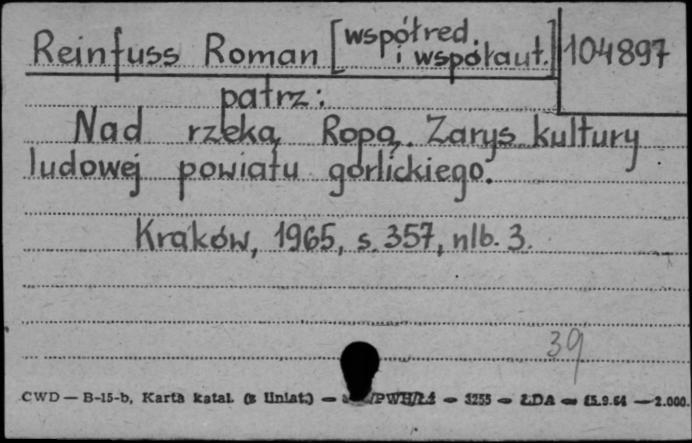 Reinfuss Roman [współred. i współaut.] 104897
patrz:
Nad rzeką Ropą. Zarys kultury
ludowej powiatu gorlickiego.
Kraków, 1965, s. 357, nlb. 3.
39
CWD — B-15-b, Karta katal. (z liniat.) — /PWH/Łź — 3255 — ŁDA — 15.9.64 — 2.000.